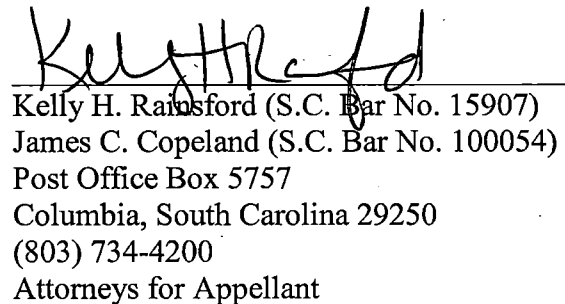 Kelly H Rainsford
Kelly H. Rainsford (S.C. Bar No. 15907)
James C. Copeland (S.C. Bar No. 100054)
Post Office Box 5757
Columbia, South Carolina 29250
(803) 734-4200
Attorneys for Appellant